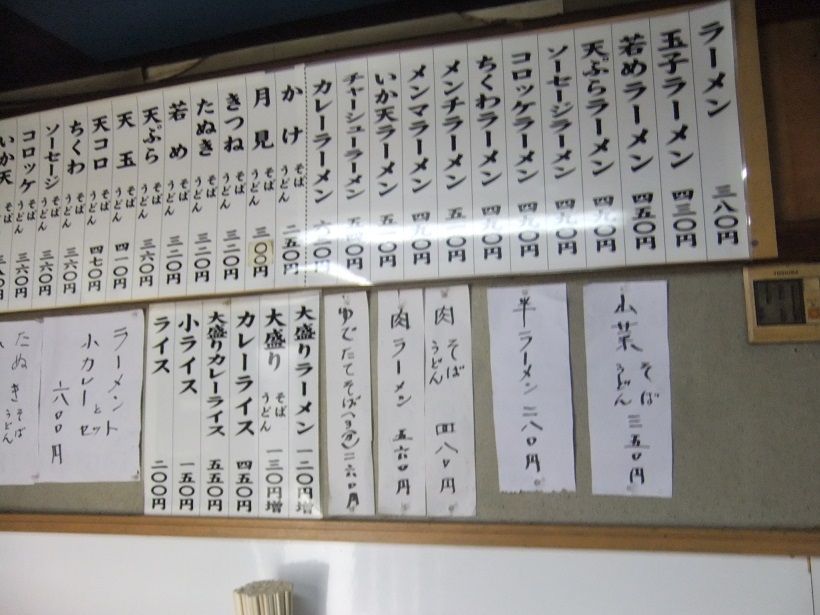 ラーメン 三八〇円
玉子ラーメン 四三〇円
若めラーメン 四五〇円
天ぷらラーメン 四九〇円
ソーセージラーメン 四九〇円
コロッケラーメン 四九〇円
ちくわラーメン 四九〇円
メンチラーメン 五一〇円
メンマラーメン 四九〇円
いか天ラーメン 五一〇円
チャーシューラーメン 五四〇円
カレーラーメン 六二〇円
かけ そば うどん 二五〇円
月見 そば うどん 三〇〇円
きつね そば うどん 三二〇円
たぬき そば うどん 三二〇円
若め そば うどん 三二〇円
天ぷら そば うどん 三六〇円
天玉 そば うどん 四一〇円
天コロ そば うどん 四七〇円
ちくわ そば うどん 三六〇円
ソーセージ そば うどん 三六〇円
コロッケ そば うどん 三六〇円
いか天 そば うどん 三八〇円
山菜 そば うどん 三五〇円
半ラーメン 二八〇円
肉 そば うどん 四八〇円
肉ラーメン 五六〇円
ゆでたてそば(3分)二六〇円
大盛りラーメン 一二〇円増
大盛り そば うどん 一三〇円増
カレーライス 四五〇円
大盛りカレーライス 五五〇円
小ライス 一五〇円
ライス 二〇〇円
ラーメント
小カレーセット
六八〇円
たぬき そば うどん